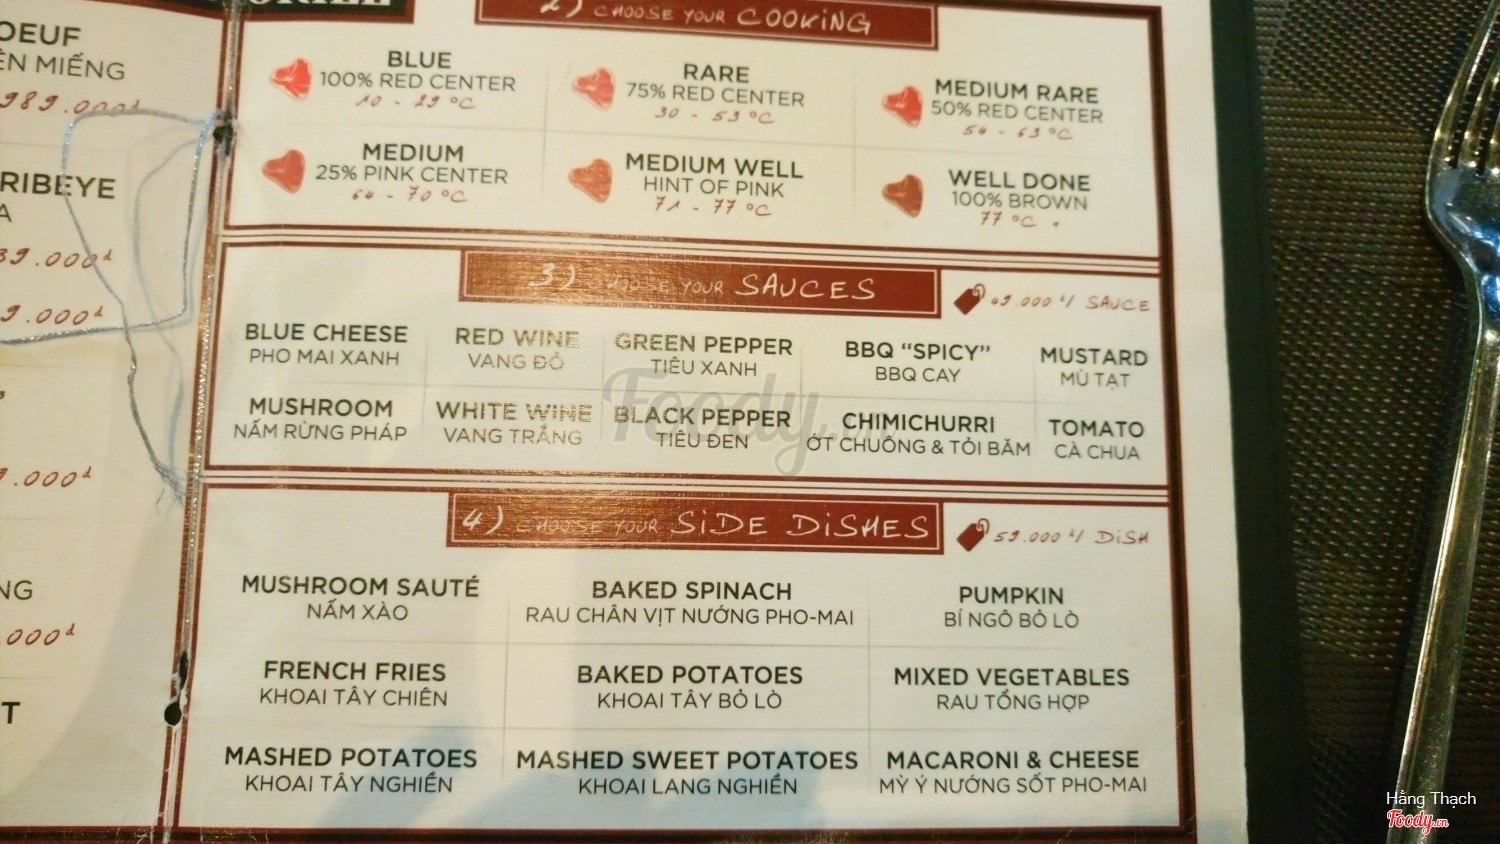 OEUF
ÊN MIẾNG
989.000đ
RIBEYE
A
39.000đ
9.000đ
9.000đ
NG
.000đ
T
2) CHOOSE YOUR COOKING
BLUE
100% RED CENTER
10 - 29 °C
RARE
75% RED CENTER
30 - 53 °C
MEDIUM RARE
50% RED CENTER
54 - 63 °C
MEDIUM
25% PINK CENTER
64 - 70 °C
MEDIUM WELL
HINT OF PINK
71 - 77 °C
WELL DONE
100% BROWN
77 °C +
3) CHOOSE YOUR SAUCES
49.000 đ/ SAUCE
BLUE CHEESE
PHO MAI XANH
RED WINE
VANG ĐỎ
GREEN PEPPER
TIÊU XANH
BBQ “SPICY”
BBQ CAY
MUSTARD
MÙ TẠT
MUSHROOM
NẤM RỪNG PHÁP
WHITE WINE
VANG TRẮNG
BLACK PEPPER
TIÊU ĐEN
CHIMICHURRI
ỚT CHUÔNG & TỎI BĂM
TOMATO
CÀ CHUA
Foody.vn
4) CHOOSE YOUR SIDE DISHES
59.000 đ/ DISH
MUSHROOM SAUTÉ
NẤM XÀO
BAKED SPINACH
RAU CHÂN VỊT NƯỚNG PHO-MAI
PUMPKIN
BÍ NGÔ BỎ LÒ
FRENCH FRIES
KHOAI TÂY CHIÊN
BAKED POTATOES
KHOAI TÂY BỎ LÒ
MIXED VEGETABLES
RAU TỔNG HỢP
MASHED POTATOES
KHOAI TÂY NGHIỀN
MASHED SWEET POTATOES
KHOAI LANG NGHIỀN
MACARONI & CHEESE
MỲ Ý NƯỚNG SỐT PHO-MAI
Hằng Thạch
Foody.vn